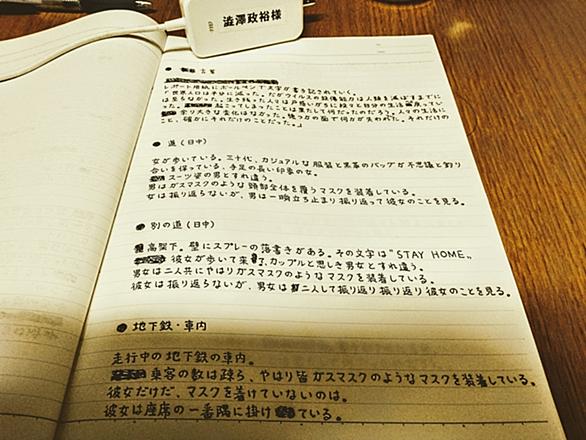 澁澤政裕様
● 言葉
レポート用紙にボールペンで文字が書き記されていく。
「世界人口は半分に減った。だがウイルスの殺傷能力は人類を滅ぼすまでに
は至らなかった。生き残った人々は戸惑いがちに段々と自分の生活に戻ってい
った。起こってしまったことは果たして何だったのだろう。人々の生活に
余り大きな変化はなかった。幾つかの面で何かが失われた。それだけの
こと、確かにそれだけのことだった。」
● 道(日中)
女が歩いている。三十代、カジュアルな服装と黒革のバッグが不思議と釣り
合いを保っている、手足の長い印象の女。
スーツ姿の男とすれ違う。
男はガスマスクのような頭部全体を覆うマスクを装着している。
女は振り返らないが、男は一瞬立ち止まり振り返って彼女のことを見る。
● 別の道(日中)
高架下。壁にスプレーの落書きがある。その文字は"STAY HOME"。
彼女が歩いて来て、カップルと思しき男女とすれ違う。
男女は二人共にやはりガスマスクのようなマスクを装着している。
彼女は振り返らないが、男女は二人して振り返り振り返り彼女のことを見る。
● 地下鉄・車内
走行中の地下鉄の車内。
乗客の数は疎ら、やはり皆ガスマスクのようなマスクを装着している。
彼女だけだ、マスクを着けていないのは。
彼女は座席の一番隅に掛けている。